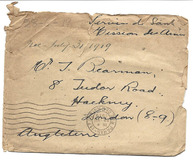 Service de Santé
Mission
July 31/1919
Mr. T. Bearman,
8 Tudor Road
Hackney
London (E-9)
Angleterre